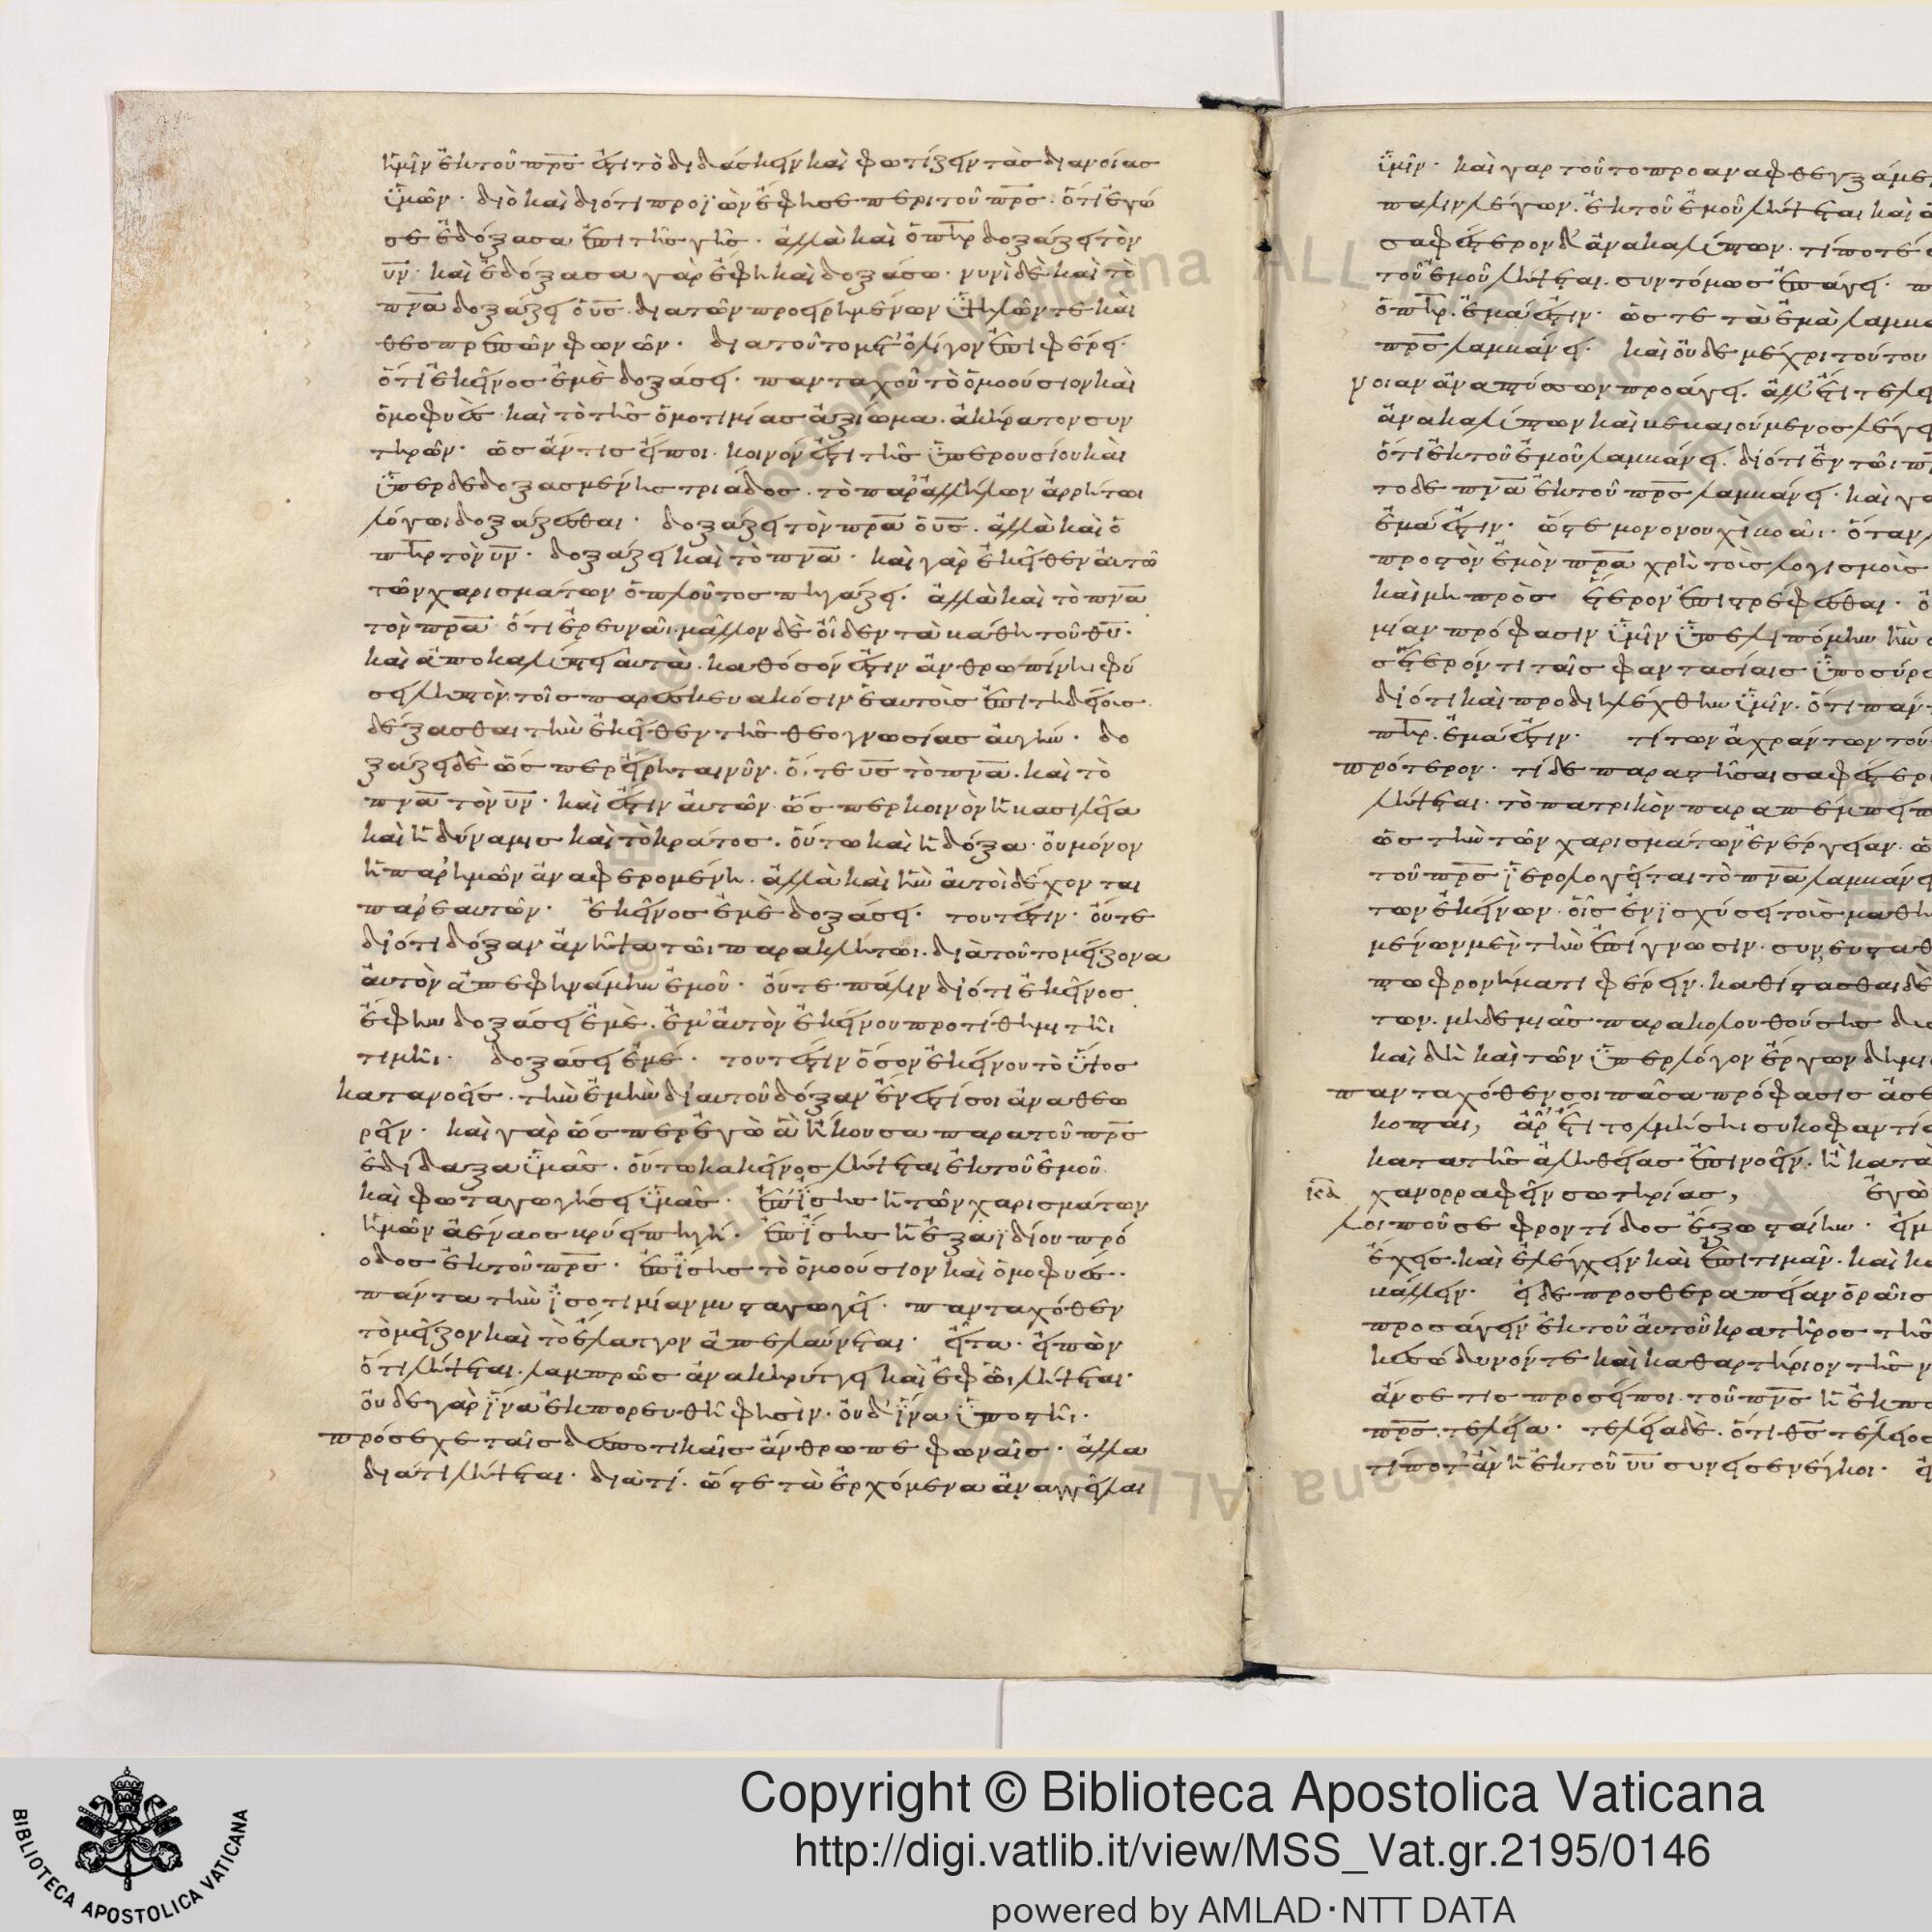 ἡμῖν ἐκ τοῦ πρ̅ς̅ ἐπὶ τὸ διδάσκειν καὶ φωτίζειν τὰς διανοίας
ὑμῶν· διὸ καὶ διότι προϊὼν ἔφησε περὶ τοῦ πρ̅ς̅. ὅτι ἐγώ
σε ἐδόξασα ἐπὶ τῆς γῆς. ἀλλὰ καὶ ὁ π̅η̅ρ δοξάζει τὸν
υ̅ν̅· καὶ ἐδόξασα γὰρ ἔφη καὶ δοξάσω. νυνὶ δὲ καὶ τὸ
πν̅α̅ δοξάζει ὁ υ̅ς̅. διὰ τῶν προειρημένων ὑψηλῶν τε καὶ
θεοπρεπῶν φωνῶν· διὰ τοῦτο μετ' ὀλίγον ἐπιφέρει·
ὅτι ἐκεῖνος ἐμὲ δοξάσει. πανταχοῦ τὸ ὁμοούσιον καὶ
ὁμοφυὲς καὶ τὸ τῆς ὁμοτιμίας ἀξίωμα. ἀκήρατον συν
τηρῶν· ὡς ἄν τις εἴποι. κοινὸν ἐστὶ τῆς ὑπερουσίου καὶ
ὑπερδεδοξασμένης τριάδος. τὸ παρ' ἀλλήλων ἀρρήτωι
λόγωι δοξάζεσθαι· δοξάζει τὸν πρ̅α̅ ὁ υ̅ς̅. ἀλλὰ καὶ ὁ
π̅η̅ρ τὸν υ̅ν̅· δοξάζει καὶ τὸ πν̅α̅· καὶ γὰρ ἐκεῖθεν αὐτῶ
τῶν χαρισμάτων ὁ πλοῦτος πηγάζει· ἀλλὰ καὶ τὸ πν̅α̅
τὸν πρ̅α̅ ὅτι ἐρευνᾶι. μᾶλλον δὲ οἶδεν τὰ βάθη τοῦ θ̅υ̅·
καὶ ἀποκαλύπτει αὐτὰ. καθόσον ἐστιν ἀνθρωπίνηι φύ
σει ληπτὸν τοῖς παρεσκευακόσιν ἑαυτοὺς ἐπιτηδείους
δέξασθαι τὴν ἐκεῖθεν τῆς θεογνωσίας αὐγήν· δο
ξάζει δὲ ὥσπερ εἴρηται νῦν. ὅ, τε υ̅ς̅ τὸ πν̅α̅. καὶ τὸ
πν̅α̅ τὸν υ̅ν̅· καὶ ἔστιν αὐτῶν ὥσπερ κοινὸν ἡ βασιλεία
καὶ ἡ δύναμις καὶ τὸ κράτος. οὕτω καὶ ἡ δόξα. οὐ μόνον
ἡ παρ' ἡμῶν ἀναφερομένη. ἀλλὰ καὶ ἣν αὐτοὶ δέχονται
παρ' ἑαυτῶν· ἐκεῖνος ἐμὲ δοξάσει. τουτέστιν· οὔτε
διότι δόξαν ἀνῆψα τῶι παρακλήτωι. διὰ τοῦτο μείζονα
αὐτὸν ἀπεφηνάμην ἐμοῦ· οὔτε πάλιν διότι ἐκεῖνος
ἔφην δοξάσει ἐμὲ. ἐμ' αὐτὸν ἐκείνου προτίθημι τῆι
τιμῆι. δοξάσει ἐμέ· τουτέστιν ὅσον ἐκείνου τὸ ὕψος
κατανοεῖς. τὴν ἐμὴν δι' αὐτοῦ δόξαν ἔνεστί σοι ἀναθεω
ρεῖν· καὶ γὰρ ὥσπερ ἐγὼ ἃ ἤκουσα παρὰ τοῦ πρ̅ς̅
ἐδίδαξα ὑμᾶς. οὕτω κακεῖνος λήψεται ἐκ τοῦ ἐμοῦ
καὶ φωταγωγήσει ὑμᾶς· ἐπίσης ἡ τῶν χαρισμάτων
ἡμῶν ἀέναος βρύει πηγή. ἐπίσης ἡ ἐξ αϊδίου πρό
οδος ἐκ τοῦ πρ̅ς̅· ἐπίσης τὸ ὁμοούσιον καὶ ὁμοφυές.
πάντα τὴν ἰσοτιμίαν μυσταγωγεῖ· πανταχόθεν
τὸ μεῖζον καὶ τὸ ἔλαττον ἀπελαύνεται· εἶτα. εἰπὼν
ὅτι λήψεται. λαμπρῶς ἀνακηρύττει καὶ ἐφ' ὧι λήψεται·
οὐδὲ γὰρ ἵνα ἐκπορευθῆ φησὶν. οὐδ' ἵνα ὑποστῆι·
πρόσεχε ταῖς δεσποτικαῖς ἄνθρωπε φωναῖς· ἀλλα
διάτι λήψεται· διὰτί. ὥστε τὰ ἐρχόμενα ἀναγγεῖλαι
ὑμῖν· καὶ γὰρ τοῦτο προαναφθεγξάμε
πάλιν λέγων. ἐκ τοῦ ἐμοῦ λήψεται καὶ ἀ
σαφέστερον δ' ἀνακαλύπτων. τί ποτέ ἐ
τοῦ ἐμοῦ λήψεται. συντόμως ἐπάγει· π
ὁ π̅η̅ρ. ἐμά ἐστιν· ὥστε τὰ ἐμὰ λαμβά
πρ̅ς̅ λαμβάνει· καὶ οὐδὲ μέχρι τούτου
νοιαν ἀναπτύσσων προάγει. ἀλλ' ἔτι τελε
ἀνακαλύπτων καὶ βεβαιούμενος λέγε
ὅτι ἐκ τοῦ ἐμοῦ λαμβάνει. διότι ἐν τῶι π
τὸ δὲ πν̅α̅ ἐκ τοῦ πρ̅ς̅ λαμβάνει. καὶ γὰ
ἐμά ἐστιν· ὥστε μονονουχὶ βοᾶι· ὅταν λ
πρὸς τὸν ἐμὸν πρ̅α̅ χρὴ τοῖς λογισμοῖς
καὶ μὴ πρὸς ἕτερον ἐπιτρέφεσθαι· ὁ
μίαν πρόφασιν ὑμῖν ὑπελιπόμην ἣν ὁ
σἕτερόν τι ταῖς φαντασίαις ὑποσύρε
διότι καὶ προδιηλέχθην ὑμῖν. ὅτι πάντ
π̅η̅ρ. ἐμά ἐστιν· τί των ἀχράντων τού
πρότερον· τί δὲ παραστῆσαι σαφέστερο
λήψεται. τὸ πατρικὸν παραπέμπει π
ὡς τὴν τῶν χαρισμάτων ἐνέργειαν. ὡ
τοῦ πρ̅ς̅ ἱερολογεῖται τὸ πν̅α̅ λαμβάνει
των ἐκείνων. οἷς ἐνϊσχύσει τοὺς μαθη
μένων μὲν τὴν ἐπίγνωσιν. συν, ευσταθ
πω φρονήματι φέρειν. καθίστασθαι δὲ
των. μηδεμιᾶς παρακολουθούσης δυ
καὶ δὴ καὶ τῶν ὑπὲρ λόγον ἔργων δημι
πανταχόθεν σοι πᾶσα πρόφασις ἀσε
κοπται, ἆρ' ἔτι τολμήσηι συκοφαντία
κατὰ τῆς ἀληθείας ἐπινοεῖν. ἢ κατα
κ̅δ̅ χανορραφεῖν σωτηρίας, ἐγὼ
λοιποῦ σε φροντίδος ἔξω σταίην. εἰμ
ἔχεις. καὶ ἐλέγχειν καὶ ἐπιτιμᾶν. καὶ κα
βάλλειν· εἰ δὲ προσθεραπείαν ὁρᾶις
προσάγειν ἐκ τοῦ αὐτοῦ κρατῆρος τῆς
κεσώδυνόν τε καὶ καθαρτήριον τῆς ν
ἄν σέ τις προσείποι. τοῦ πν̅ς̅ ἡ ἐκπο
πρ̅ς̅. τελεία· τελεία δὲ. ὅτι θ̅ς̅ τέλειος
τί ποτ' ἂν ἡ ἐκ τοῦ υ̅υ̅ συνεισενέγκοι· εἰ
BIBLIOTECA APOSTOLICA VATICANA
Copyright © Biblioteca Apostolica Vaticana
http://digi.vatlib.it/view/MSS_Vat.gr.2195/0146
powered by AMLAD·NTT DATA